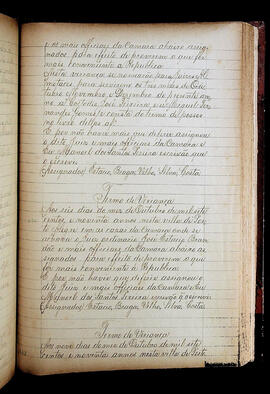 e os mais officiaes da Camara abaixo assig-
nados p.a effeito de proverem o que for
mais conveniente a Republica
Nesta vereança se nomearão para
motaces para servirem os tres mezes de Ou-
tubro Novembro e Dezembro do presente an-
no a Custodio José Teixeira e a Miguel Fer-
nandes Gomes consta do termo da posse
no livro delles
E por não haver mais que deferir assignou
o dito Juiz e mais officiaes da Camara e
Eu Manoel dos Santos Teixeira escrivão que
o escrevi
Assignados, Estacio, Braga, Velho, Silva, Costa
Termo de Vereança
Aos seis dias do mez de Outubro de mil sete
centos e noventa annos nesta villa de Sete
e sendo em as casas da Camara onde se
achava o Juiz ordinario José Estacio Bran-
dão e mais officiaes da Camara abaixo as-
signados para effeito de proverem o que
for mais conveniente à Republica.
E por não haver que deferir assignou o
dito Juiz e mais officiaes da Camara e Eu
Manoel dos Santos Teixeira escrivão q. o escrevi
Assignados, Estacio, Braga, Velho, Silva, Costa
Termo de Vereança
Aos nove dias do mez de Outubro de mil sete
centos e noventa annos nesta villa de Sete